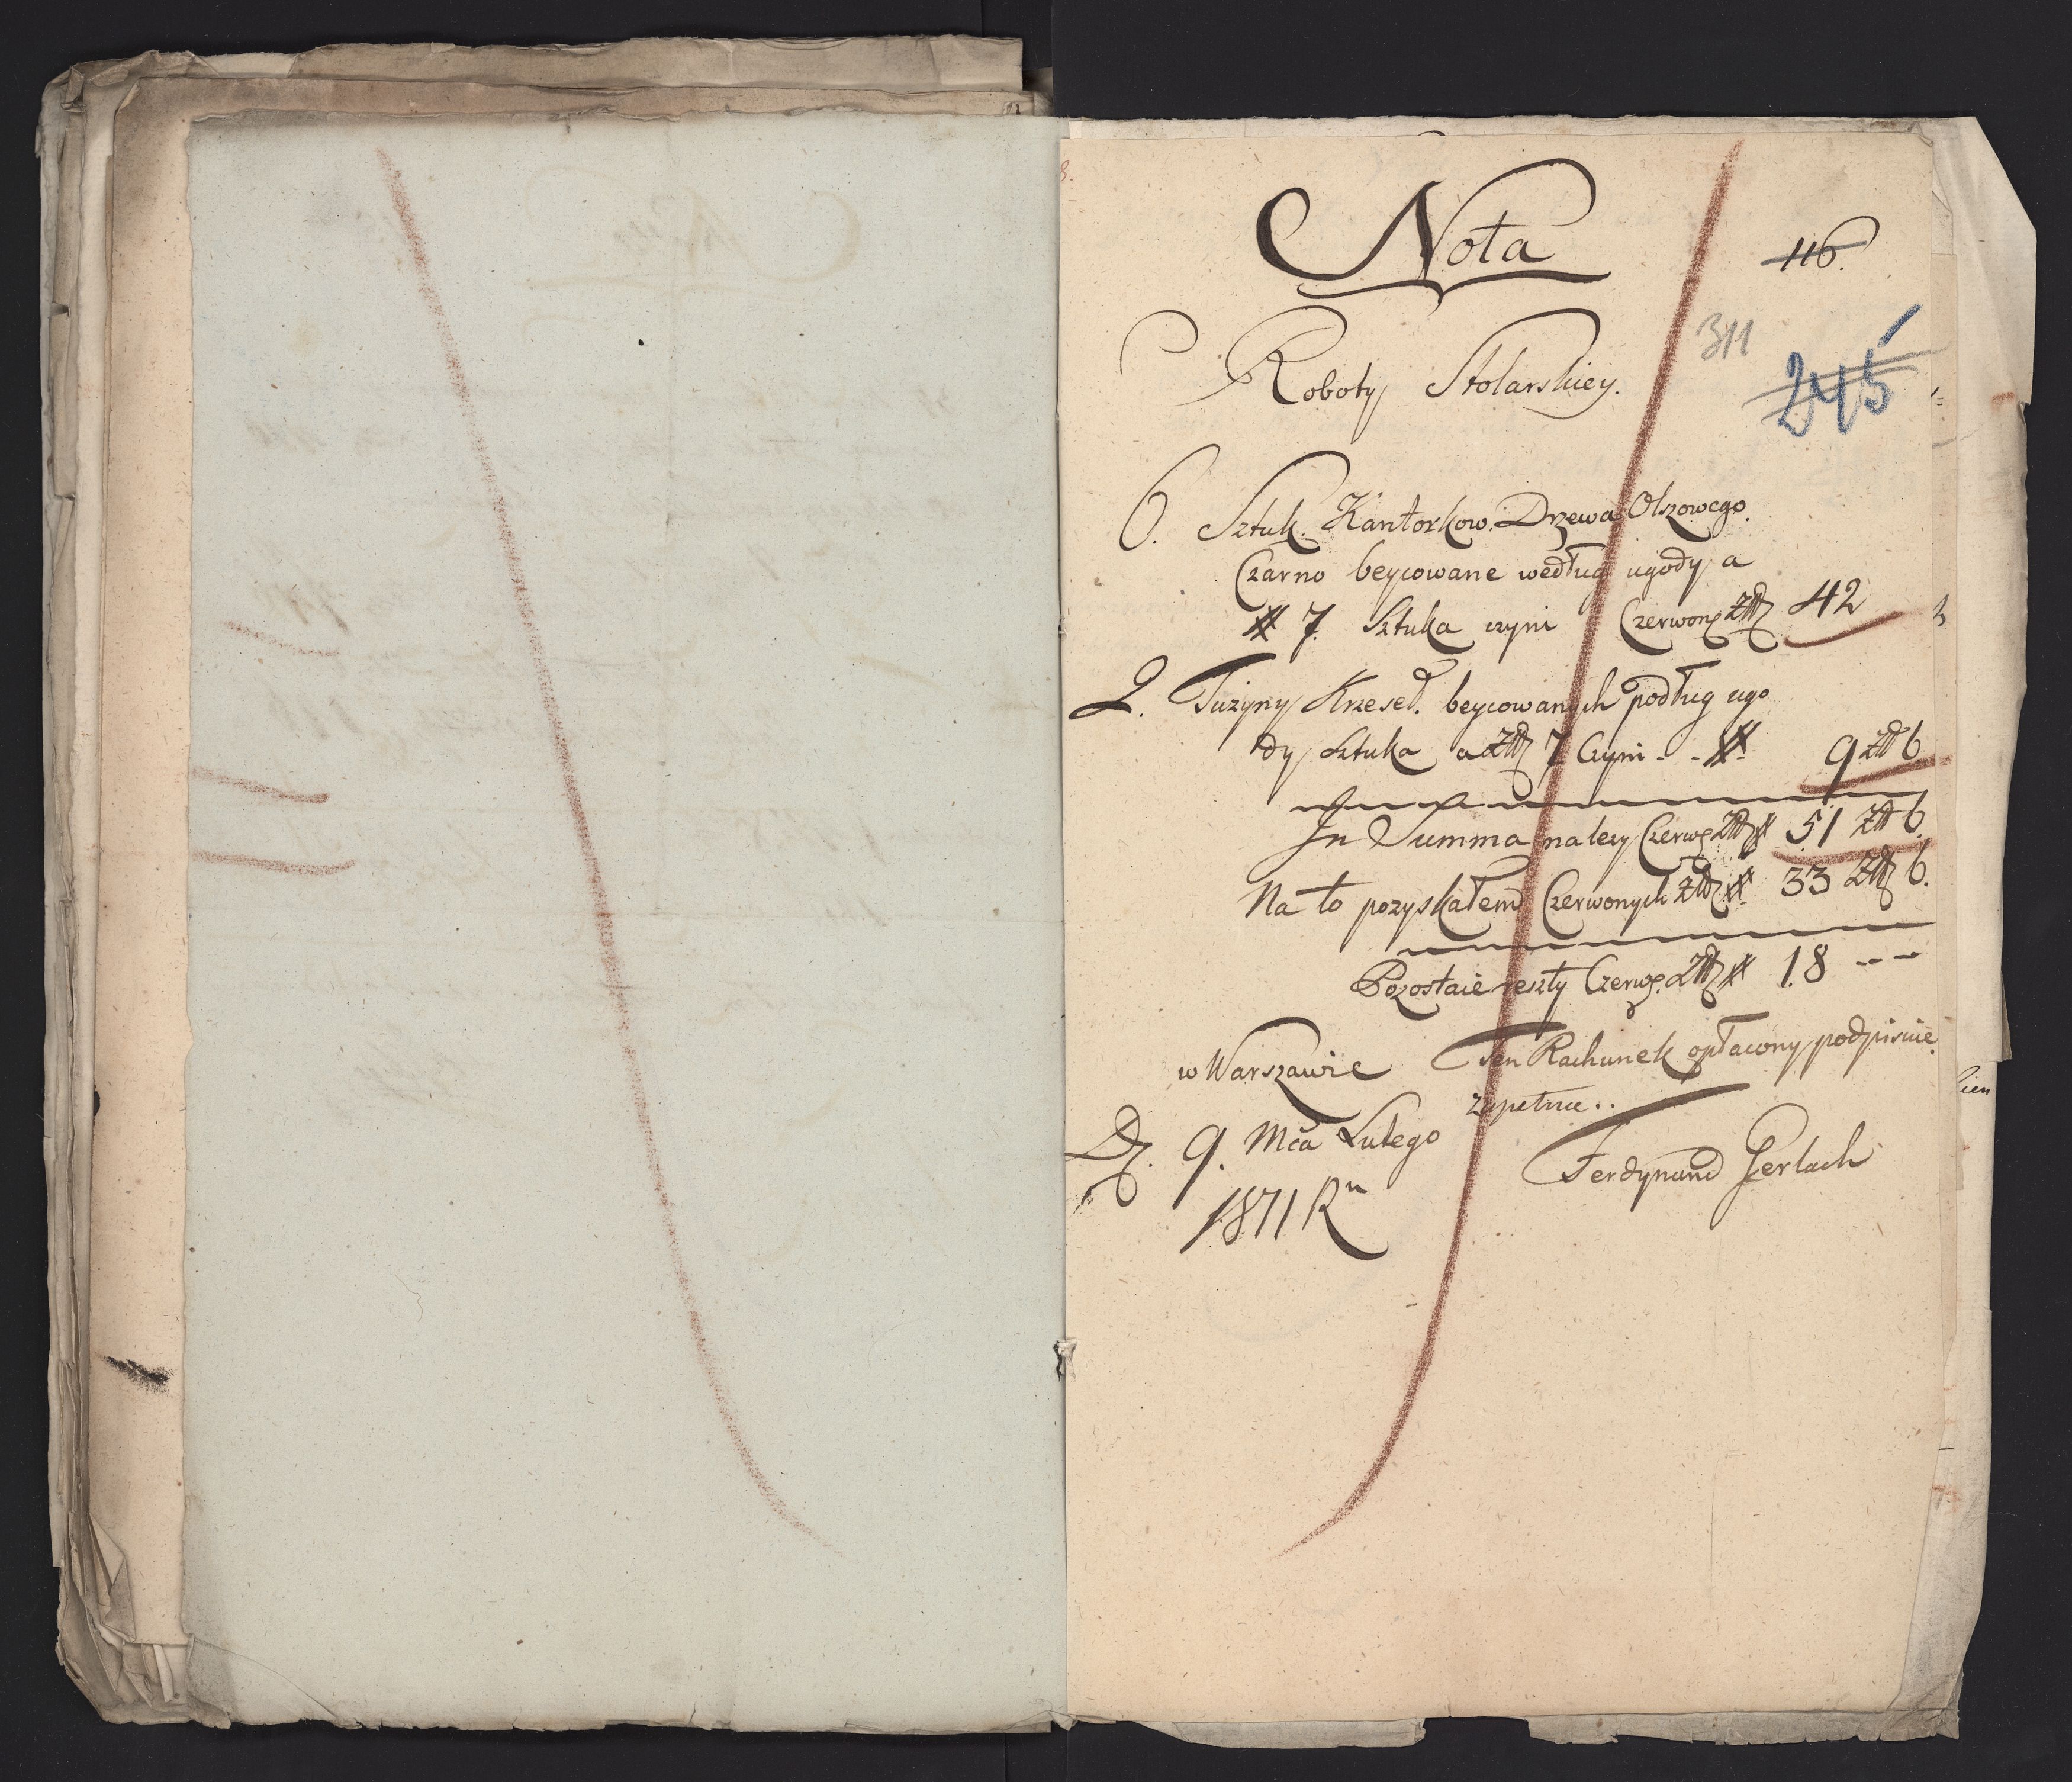 8.
Nota
116.
311
245
Roboty Stolarskiey.
6. Sztuk. Kantorkow. Drzewa Olszowego.
Czarno beycowane według ugody a
# 7. Sztuka czyni Czerwonÿ Złł 42
2. Tuzyny Krzeseł. beycowanych podług ugo
dy Sztuka a Złł 7 Czyni - - # 9 złł 6
In Summa nalezy Czerwÿ Złł # 51 Złł 6.
Na to pozyskałem Czerwonych Złł # 33 Złł 6.
Pozostaie reszty Czerwÿ. Złł # 18 - -
w Warszawie Ten Rachunek opłacony podpisuie
zupełnie..
D. 9. Mca Lutego
Ferdynand Gerlach
1811 Ru